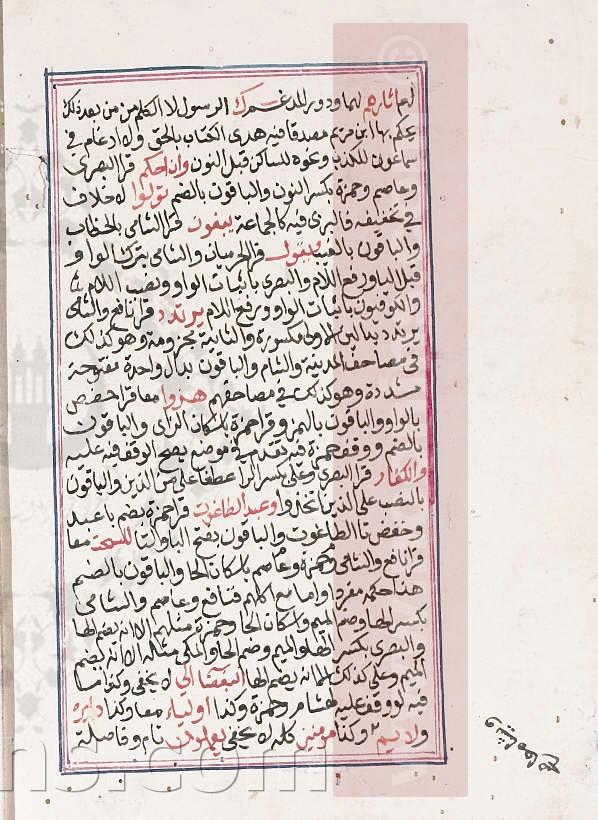 لهم اثارهم لهما ودوري المدغم ك الرسول لا الكلم من من بعد ذلك
يحكم بها ابن مريم مصدقا فيه هدى الكتاب بالحق ولا ادغام في
سماعون للكذب ونحوه للساكن قبل النون وان احكم قرا البصري
وعاصم وحمزة بكسر النون والباقون بالضم تولوا لا خلاف
في تخفيفه فالبزي فيه كالجماعة يبغون قرا الشامي بالخطاب
والباقون بالغيب يقول قرا الحرميان والشامي بترك الواو
قبل اليا ورفع اللام والبصري باثبات الواو ونصب اللام
والكوفيون باثبات الواو ورفع اللام يرتدد قرا نافع والشامي
يرتدد بدالين الاولى مكسورة والثانية مجزومة وهو كذلك
في مصاحف المدينة والشام والباقون بدال واحدة مفتوحة
مشددة وهو كذلك في مصاحفهم هزوا معا قرا حفص
بالواو والباقون بالهمز وقرا حمزة باسكان الزاي والباقون
بالضم ووقف حمزة فيه تقدم في موضع يصح الوقف فيه عليه
والكفار قرا البصري وعلي بكسر الرا عطفا على من الذين والباقون
بالنصب على الذين اتخذوا وعبد الطاغوت قرا حمزة بضم با عبد
وخفض تا الطاغوت والباقون بفتح البا والتا للسحت معا
قرا نافع والشامي وحمزة وعاصم باسكان الحا والباقون بالضم
هذا حكمه مفردا واما مع اكلهم فنافع وعاصم والشامي
بكسر الها وضم الميم واسكان الحا وحمزة مثلهم الا انه يضم الها
والبصري بكسر الها والميم وضم الحا والمكي مثله الا انه يضم
الميم وعلي كذلك الا انه يضم الها البغضا الى لا يخفى وكذا ما
فيه لو وقف عليه لهشام وحمزة وكذا اولياء معا وكذا دايرة
ولايم وكذا مومنين كله لا يخفى يعملون تام وفاصلة